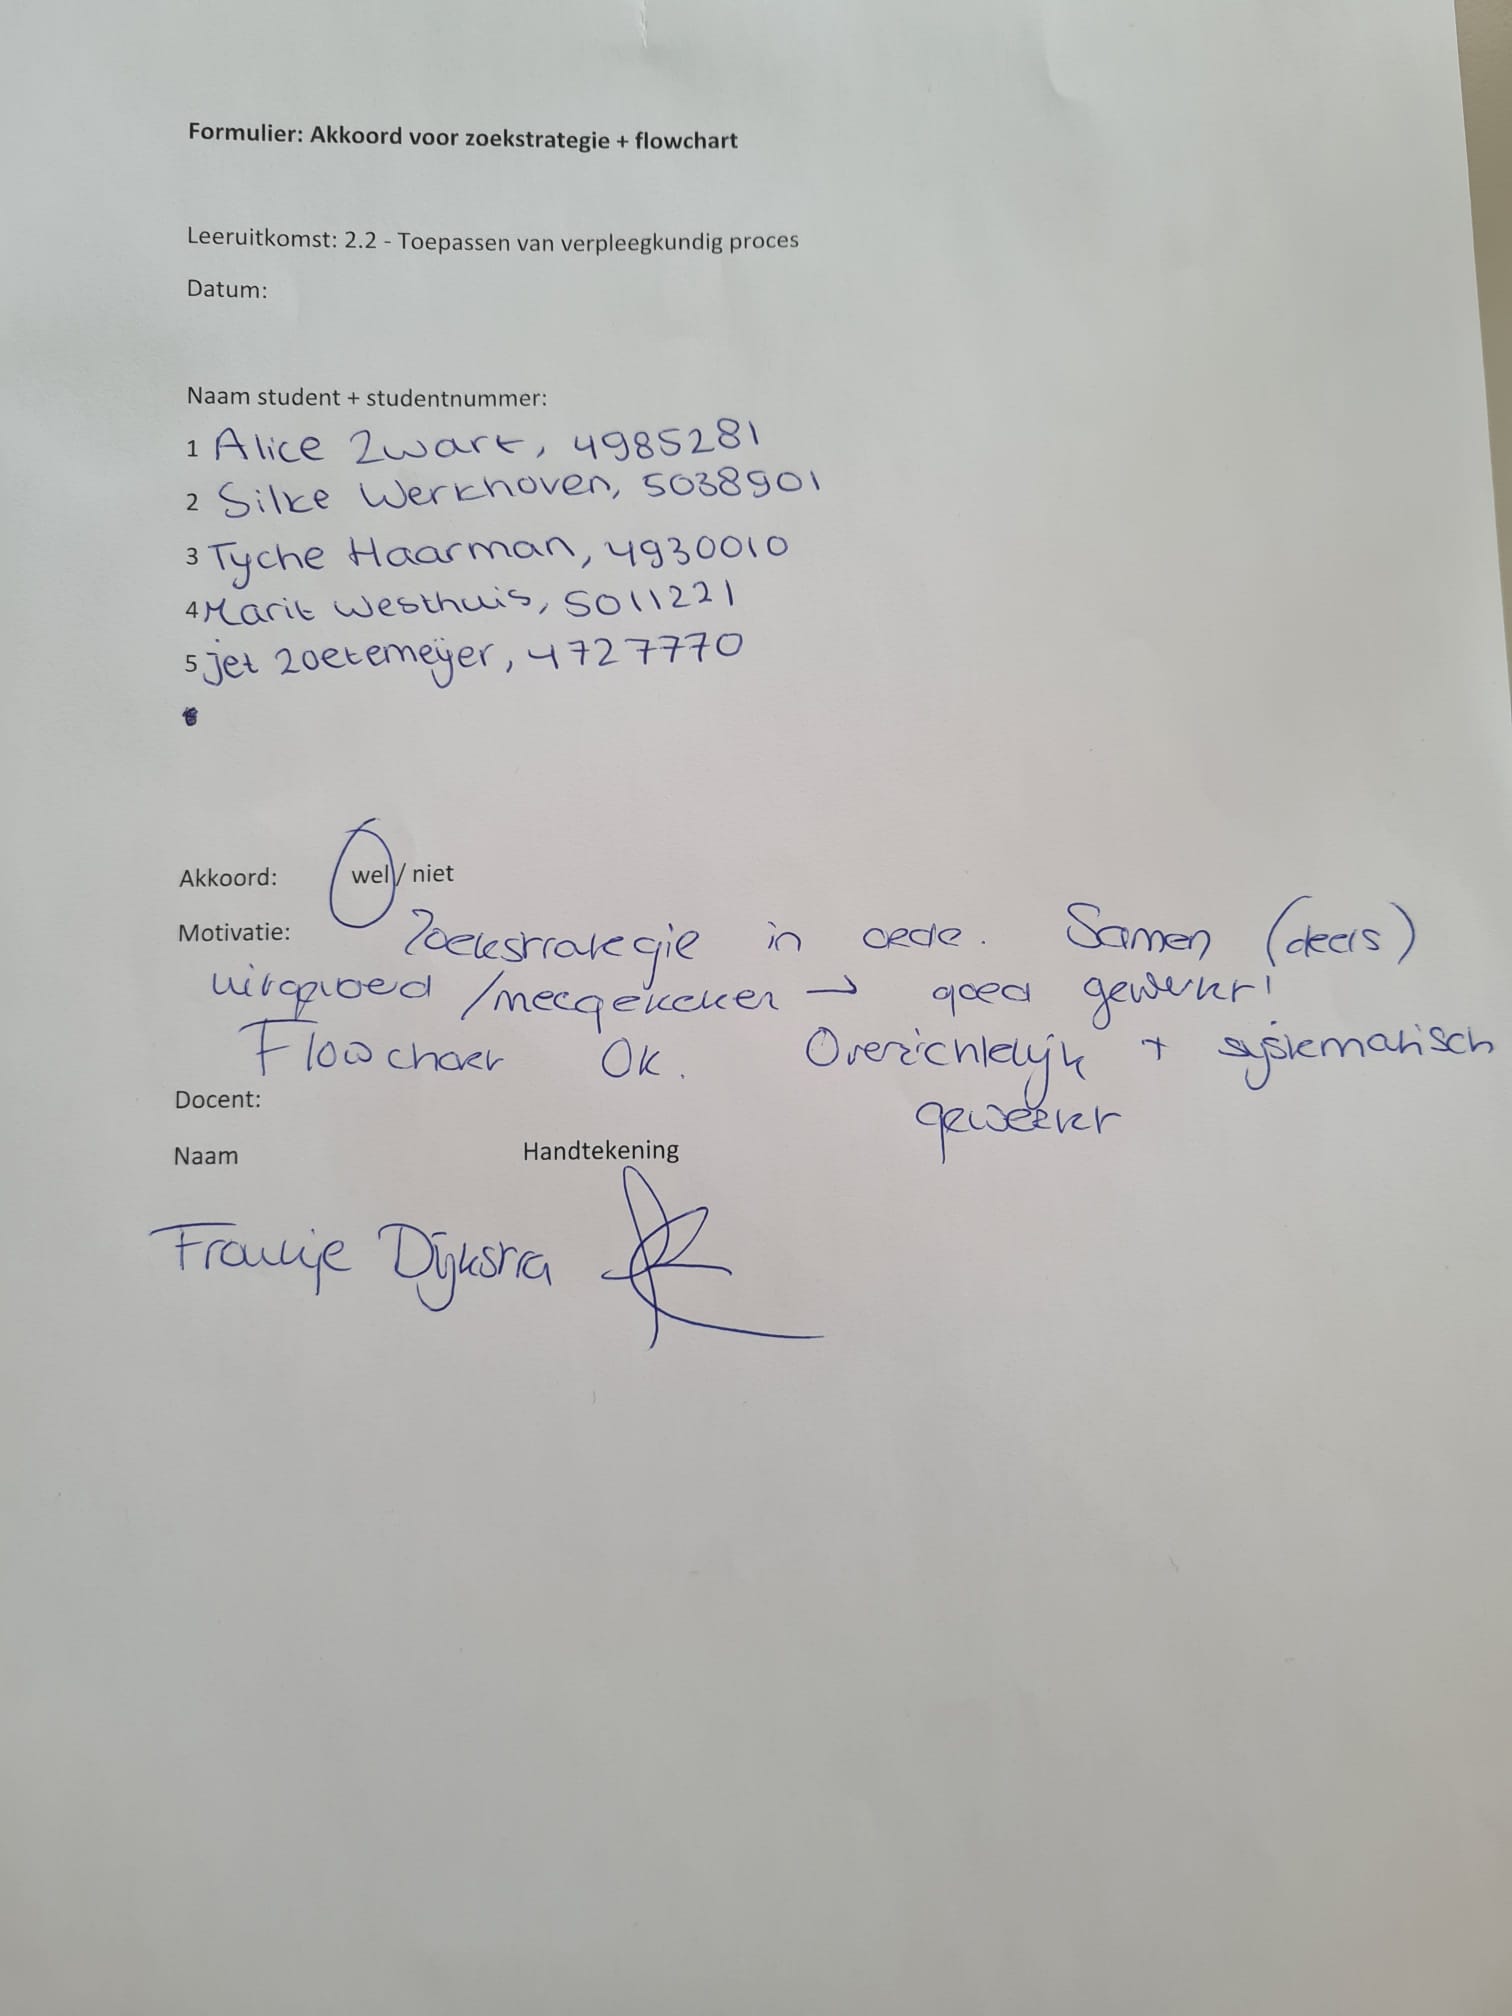 Formulier: Akkoord voor zoekstrategie + flowchart
Leeruitkomst: 2.2 - Toepassen van verpleegkundig proces
Datum:
Naam student + studentnummer:
1 Alice Zwart, 4985281
2 Silke Werkhoven, 5038901
3 Tyche Haarman, 4930010
4 Marit Westhuis, 5011221
5 jet zoetemeÿer, 4727770
Akkoord: wel / niet
Motivatie: Zoekstrategie in orde. Samen (deels)
uitgevoerd / meegekeken → goed gewerkt!
Flowchart OK. Overzichtelijk + systematisch
gewerkt
Docent:
Naam Handtekening
Froukje Dijkstra